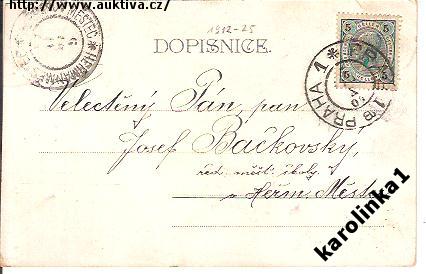 http://www.auktiva.cz/
1912-25
DOPISNICE.
5 5
PRAHA 1
Velectěný Pán, pan
Josef Bačkovský,
řed. měšť. školy
v Heřm. Městci
karolinka1